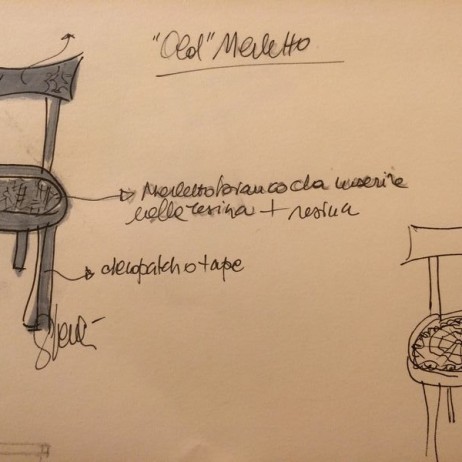 "Old" Merletto
Merletto bianco da inserire
nella resina + resina
decopatch o tape